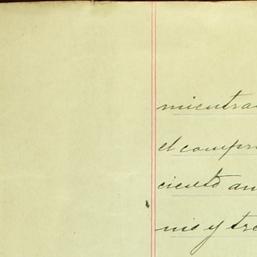 mientra
el compr
ciento an
nis y tre